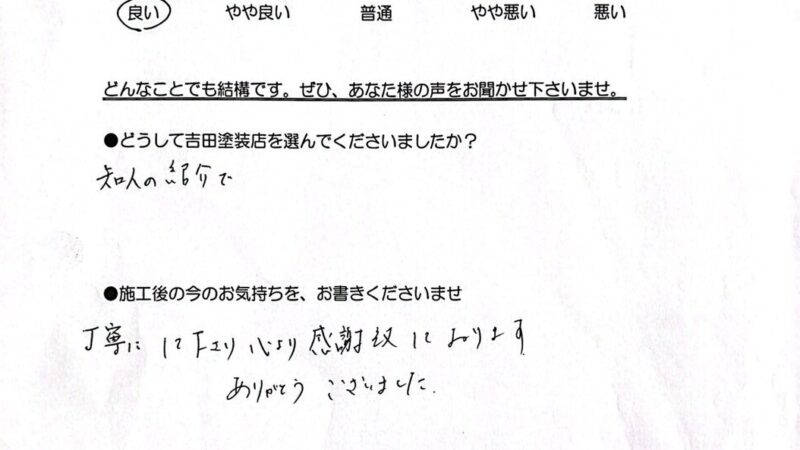 良い やや良い 普通 やや悪い 悪い
どんなことでも結構です。ぜひ、あなた様の声をお聞かせ下さいませ。
●どうして吉田塗装店を選んでくださいましたか？
知人の紹介で
●施工後の今のお気持ちを、お書きくださいませ
丁寧にして下さり心より感謝致しております
ありがとうございました。